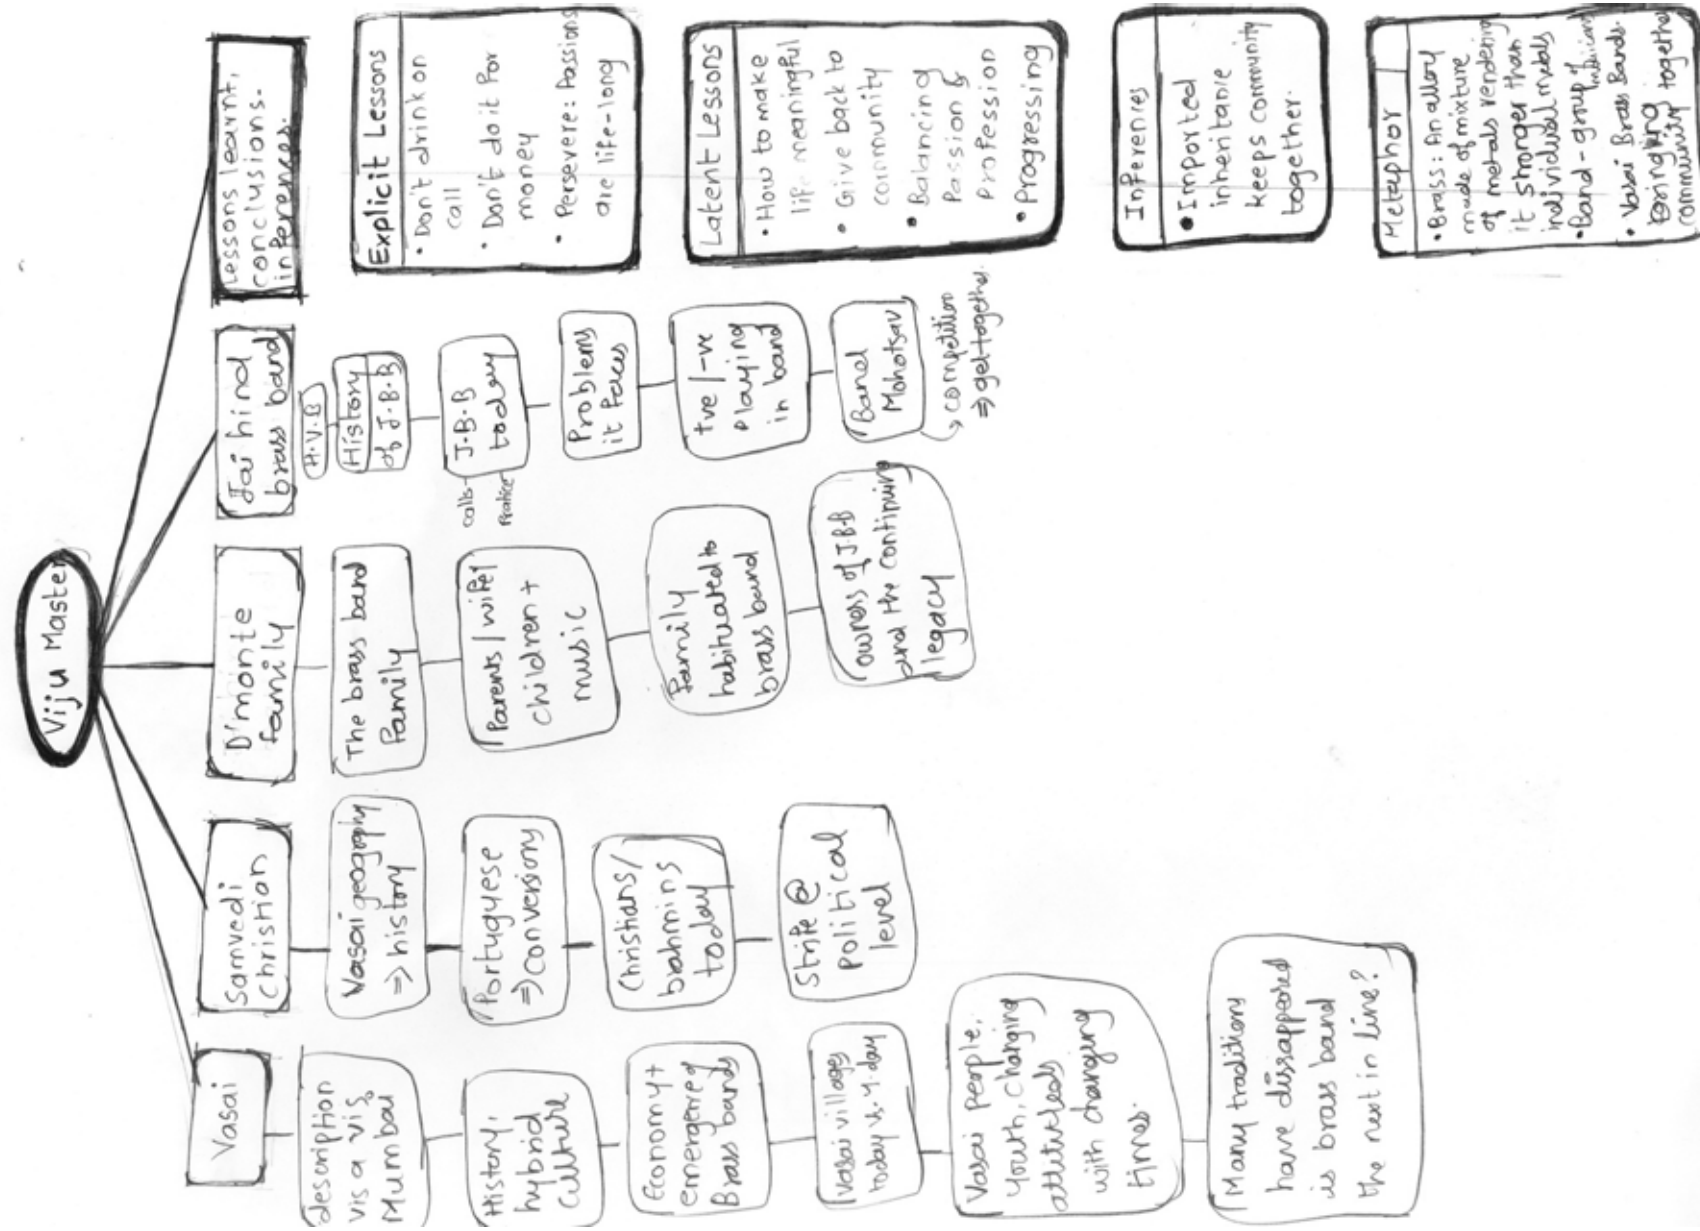 Viju Master
Vasai
description
vis a vis
Mumbai
History,
hybrid
culture
Economy +
emergence of
Brass bands
Vasai villages
today vs. y.day
Vasai people,
youth, changing
attitudes
with changing
times.
Many traditions
have disappeared
is brass band
the next in line?
Samvedi
Christian
Vasai geography
⇒ history
Portuguese
⇒ conversions
Christians/
brahmins
today
Strife @
political
level
D'monte
family
The brass band
family
Parents / wife /
children +
music
Family
habituated to
brass band
owners of J.B.B
and the continuing
legacy
Jai hind
brass band
H.V.B
History
of J.B.B
J.B.B
today
calls
Pratice
Problems
it faces
+ve / -ve
playing
in band
Band
Mohotsav
→ competition
⇒ get together.
Lessons learnt,
conclusions.
inferences.
Explicit Lessons
• Don't drink on
call
• Don't do it for
money
• Persevere: Passions
are life-long
Latent Lessons
• How to make
life meaningful
• Give back to
community
• Balancing
Passion &
profession
• Progressing
Inferences
• Imported
inheritance
keeps community
together.
Metaphor
• Brass: An alloy
made of mixture
of metals rendering
it stronger than
individual metals
• Band - group of
• Vasai Brass Bands.
bringing
community together